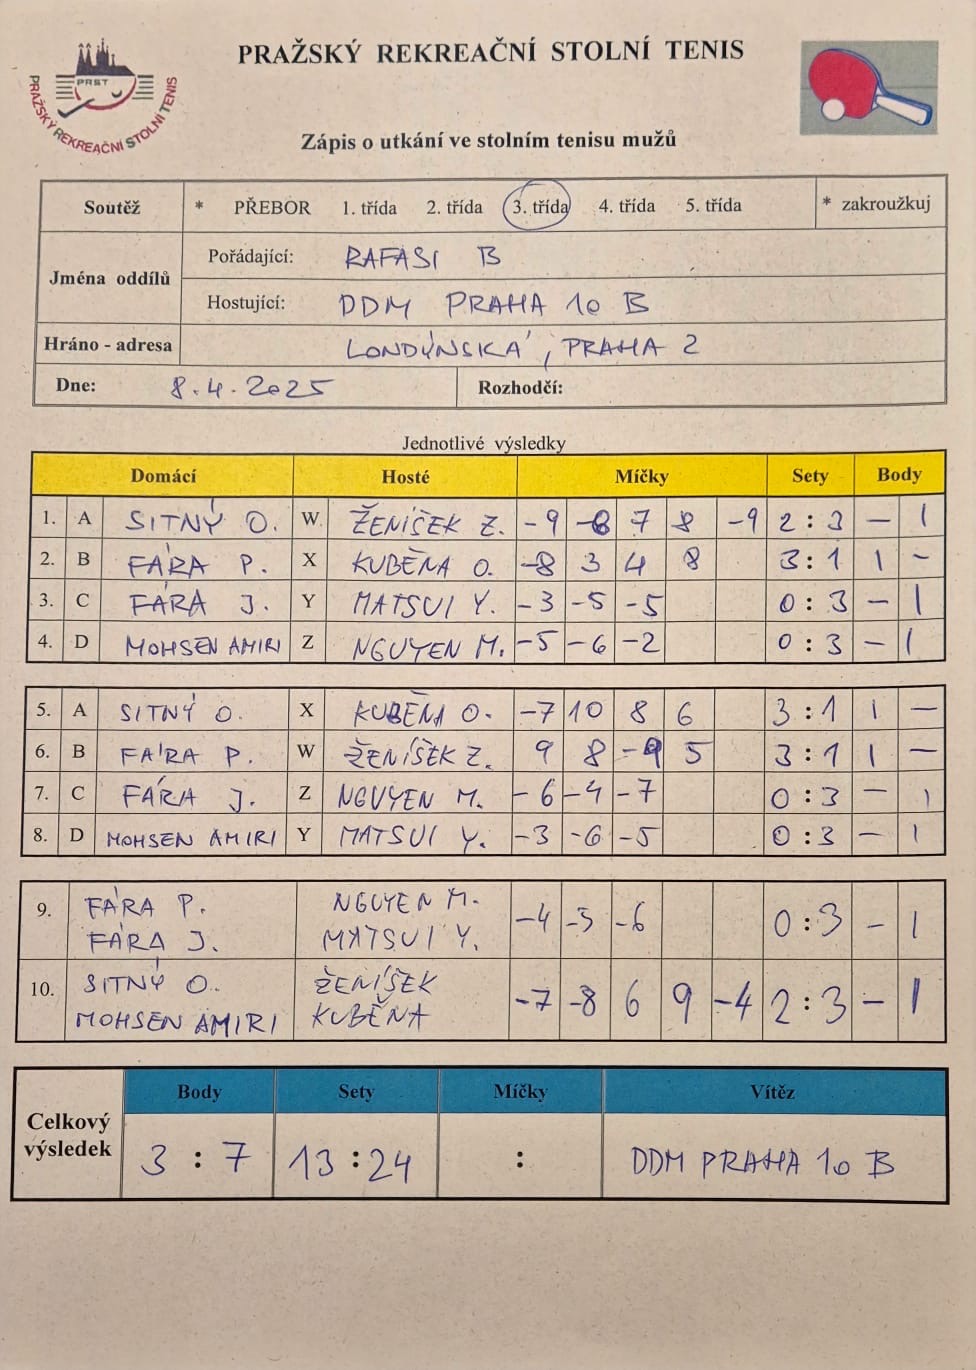 PRAŽSKÝ REKREAČNÍ STOLNÍ TENIS
PRST
PRAŽSKÝ REKREAČNÍ STOLNÍ TENIS
Zápis o utkání ve stolním tenisu mužů
Soutěž * PŘEBOR 1. třída 2. třída 3. třída 4. třída 5. třída * zakroužkuj
Jména oddílů
Pořádající: RAFASI B
Hostující: DDM PRAHA 10 B
Hráno - adresa LONDÝNSKÁ, PRAHA 2
Dne: 8.4.2025 Rozhodčí:
Jednotlivé výsledky
Domácí Hosté Míčky Sety Body
1. A SITNÝ O. W. ŽENÍŠEK Z. -9 -8 7 8 -9 2:3 - 1
2. B FÁRA P. X KUBĚNA O. -8 3 4 8 3:1 1 -
3. C FÁRA J. Y MATSUI Y. -3 -5 -5 0:3 - 1
4. D MOHSEN AMIRI Z NGUYEN M. -5 -6 -2 0:3 - 1
5. A SITNÝ O. X KUBĚNA O. -7 10 8 6 3:1 1 -
6. B FÁRA P. W ŽENÍŠEK Z. 9 8 -9 5 3:1 1 -
7. C FÁRA J. Z NGUYEN M. -6 -4 -7 0:3 - 1
8. D MOHSEN AMIRI Y MATSUI Y. -3 -6 -5 0:3 - 1
9. FÁRA P. NGUYEN M. -4 -5 -6 0:3 - 1
FÁRA J. MATSUI Y.
10. SITNÝ O. ŽENÍŠEK -7 -8 6 9 -4 2:3 - 1
MOHSEN AMIRI KUBĚNA
Celkový výsledek
Body Sety Míčky Vítěz
3 : 7 13:24 : DDM PRAHA 10 B